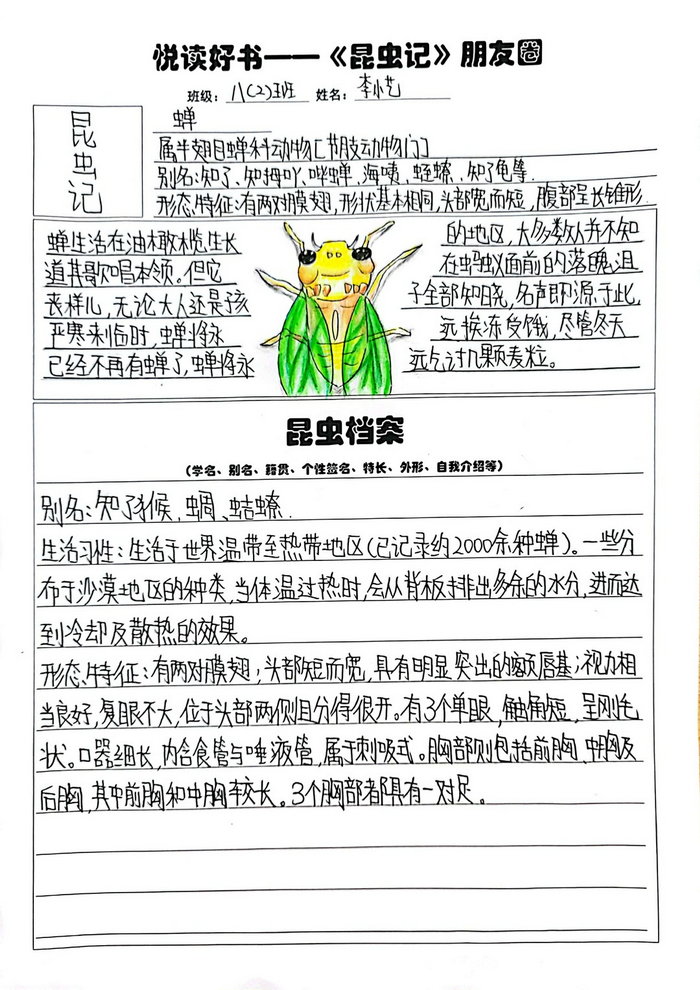 悦读好书——《昆虫记》朋友圈
班级：八(2)班 姓名：李小艺
昆虫记
蝉
属半翅目蝉科动物[节肢动物门]
别名:知了、知拇吖、哔蝉、海咦、蛭蟟、知了龟等.
形态特征:有两对膜翅,形状基本相同,头部宽而短,腹部呈长锥形.
蝉生活在油橄榄生长
道其歌唱本领。但它
丧样儿,无论大人还是孩
严寒来临时,蝉将永
已经不再有蝉了,蝉将永
的地区,大多数人并不知
在蚂蚁面前的落魄沮
子全部知晓,名声即源于此,
远挨冻受饿,尽管冬天
远乞讨几颗麦粒。
昆虫档案
(学名、别名、籍贯、个性签名、特长、外形、自我介绍等)
别名:知了猴、蜩、蛣蟟.
生活习性:生活于世界温带至热带地区(已记录约2000余种蝉)。一些分
布于沙漠地区的种类,当体温过热时,会从背板排出多余的水分,进而达
到冷却及散热的效果。
形态特征:有两对膜翅;头部短而宽,具有明显突出的额唇基;视力相
当良好,复眼不大,位于头部两侧且分得很开。有3个单眼,触角短,呈刚毛
状。口器细长,内含食管与唾液管,属于刺吸式。胸部则包括前胸、中胸及
后胸,其中前胸和中胸较长。3个胸部都具有一对足。